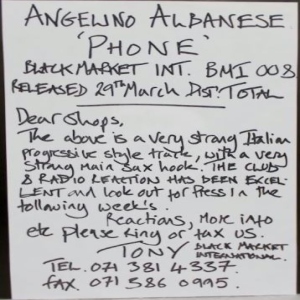 ANGELINO ALBANESE
'PHONE'
BLACK MARKET INT. BMI 008
RELEASED 29TH March DIST: TOTAL
Dear Shops,
The above is a very strong Italian
progressive style track, with a very
strong main sax hook. THE CLUB
& RADIO REACTION HAS BEEN EXCEL-
LENT and look out for Press in the
following week's.
Reactions, More info
etc please ring or fax us.
TONY BLACK MARKET
INTERNATIONAL.
TEL. 071 381 4337
FAX. 071 586 0995.